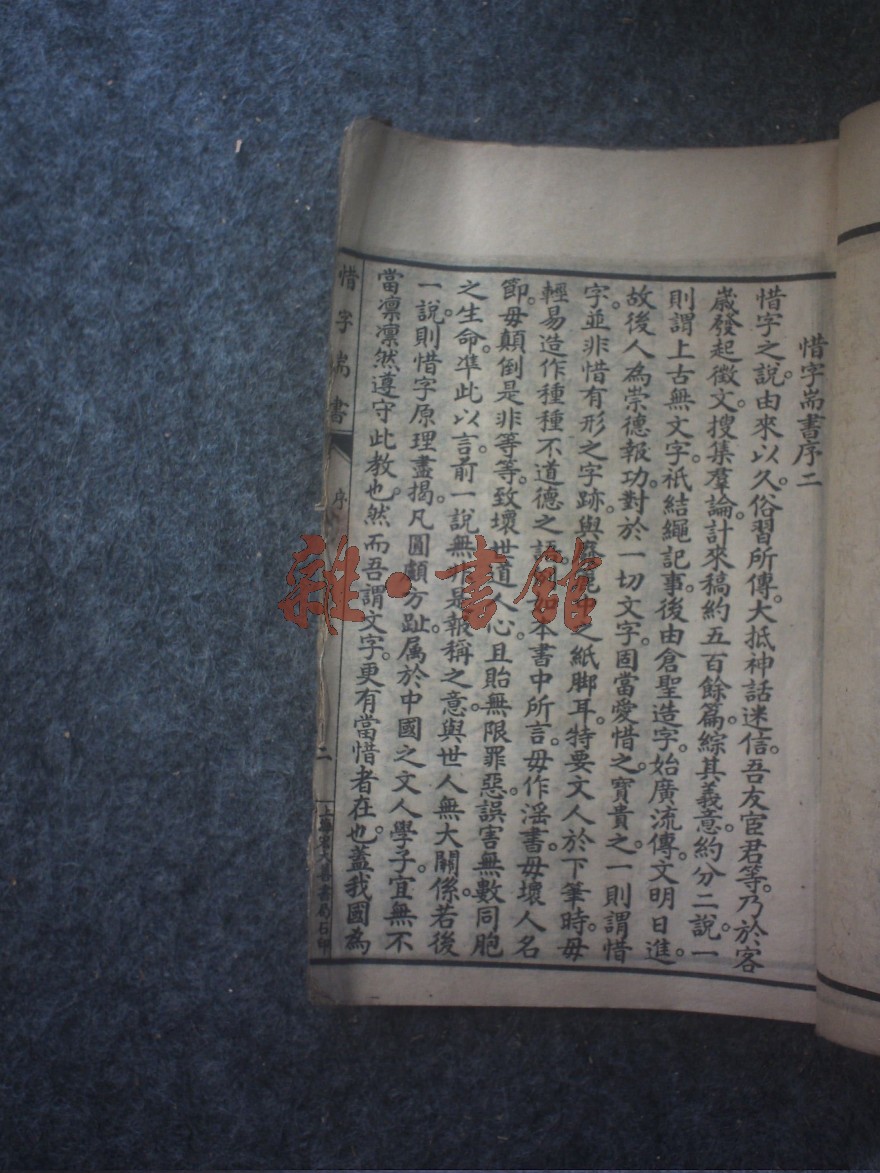 惜字耑書序二
惜字之說。由來以久。俗習所傳。大抵神話迷信。吾友宦君等。乃於客
歲發起徵文。搜集羣論。計來稿約五百餘篇。綜其義意。約分二說。一
則謂上古無文字。祇結繩記事。後由倉聖造字。始廣流傳。文明日進。
故後人為崇德報功。對於一切文字。固當愛惜之。寶貴之。一則謂惜
字。並非惜有形之字跡。與之紙脚耳。特要文人於下筆時。毋
輕易造作種種不道德之語。本書中所言。毋作滛書。毋壞人名
節。毋顛倒是非等等。致壞世道人心。且貽無限罪惡。誤害無數同胞
之生命。準此以言。前一說無非是報稱之意。與世人無大關係。若後
一說則惜字原理盡揭。凡圓顱方趾。属於中國之文人學子。宜無不
當凛凛然遵守此教也。然而吾謂文字。更有當惜者在也。蓋我國為
惜字耑書
序
二
上海宏大善書局石印
雜·書館